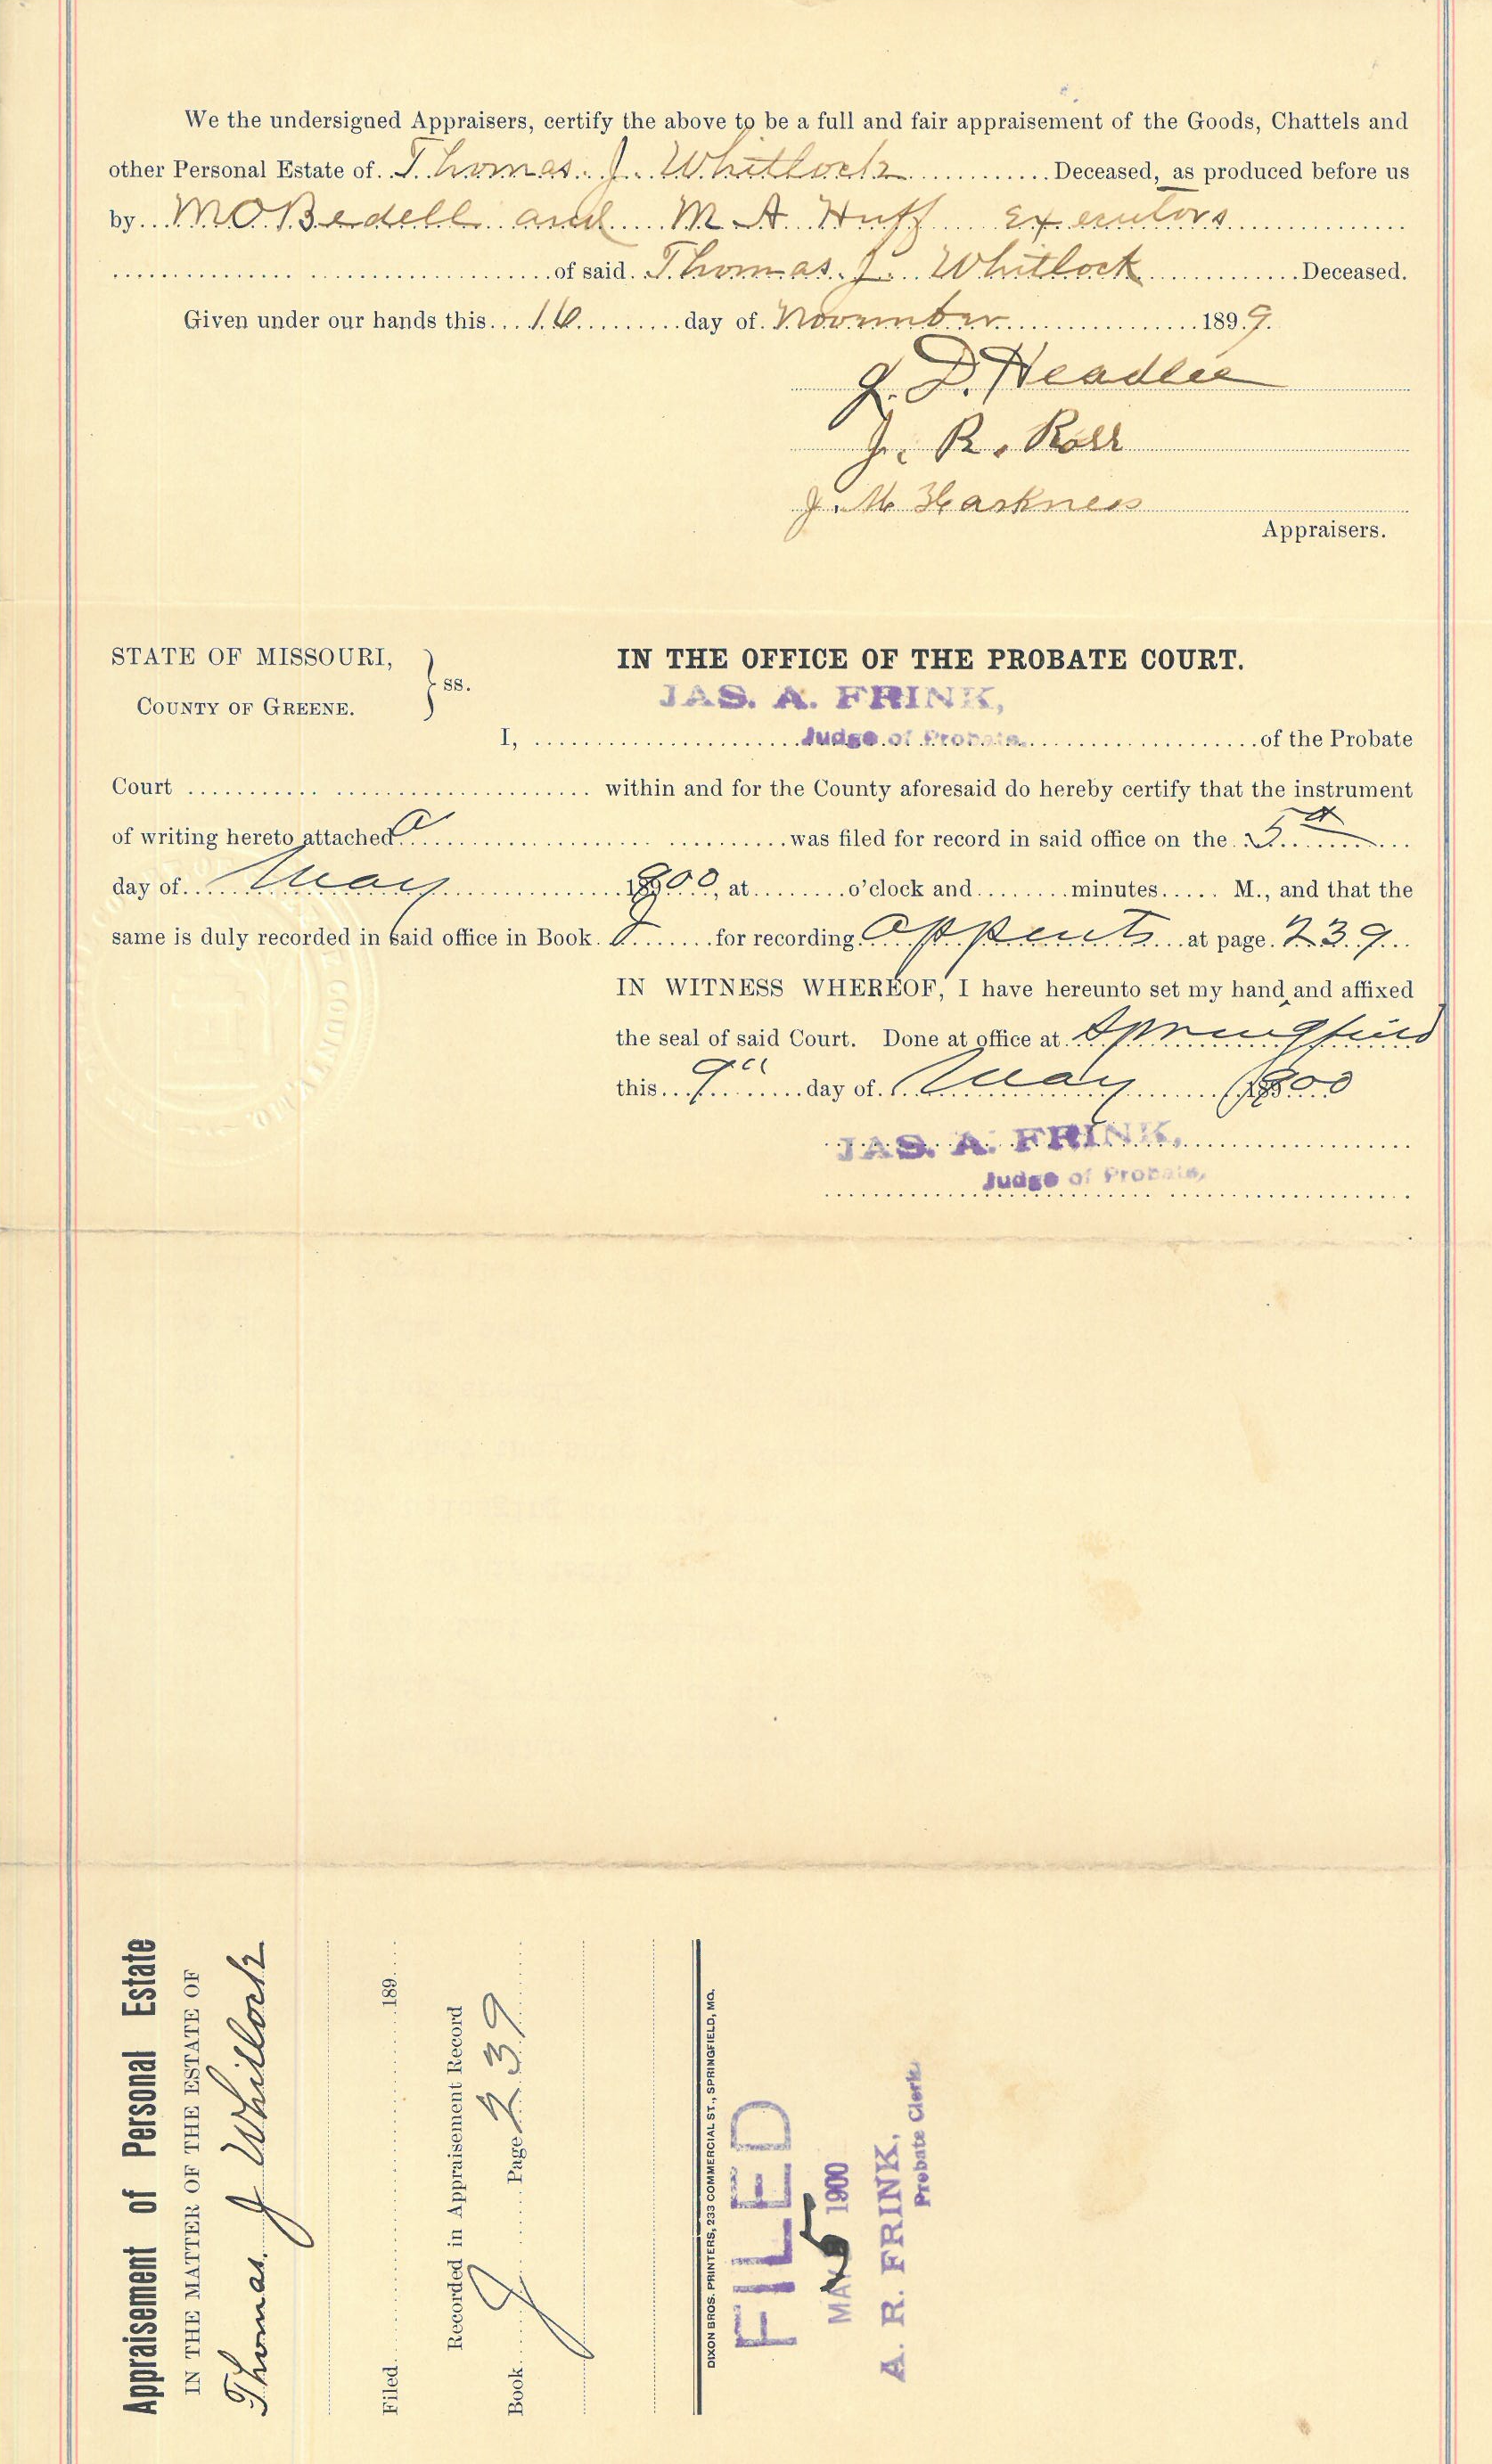 We the undersigned Appraisers, certify the above to be a full and fair appraisement of the Goods, Chattels and
other Personal Estate of Thomas J. Whitlock Deceased, as produced before us
by M O Bedell and M A Huff Executors
of said Thomas J. Whitlock Deceased.
Given under our hands this 16 day of November 1899.
J. D. Headlee
J. R. Ross
J. M Harkness
Appraisers.
STATE OF MISSOURI,
COUNTY OF GREENE.
} ss.
IN THE OFFICE OF THE PROBATE COURT.
JAS. A. FRINK,
I, Judge of Probate, of the Probate
Court within and for the County aforesaid do hereby certify that the instrument
of writing hereto attached was filed for record in said office on the 5th
day of May 1900, at o'clock and minutes M., and that the
same is duly recorded in said office in Book J for recording Appments at page 239
IN WITNESS WHEREOF, I have hereunto set my hand and affixed
the seal of said Court. Done at office at Springfield
this 9" day of May 1900
JAS. A. FRINK,
Judge of Probate,
Appraisement of Personal Estate
IN THE MATTER OF THE ESTATE OF
Thomas J Whitlock
Filed 189
Recorded in Appraisement Record
Book J Page 239
DIXON BROS. PRINTERS, 233 COMMERCIAL ST., SPRINGFIELD, MO.
FILED
MAY 5 1900
A. R. FRINK,
Probate Clerk.